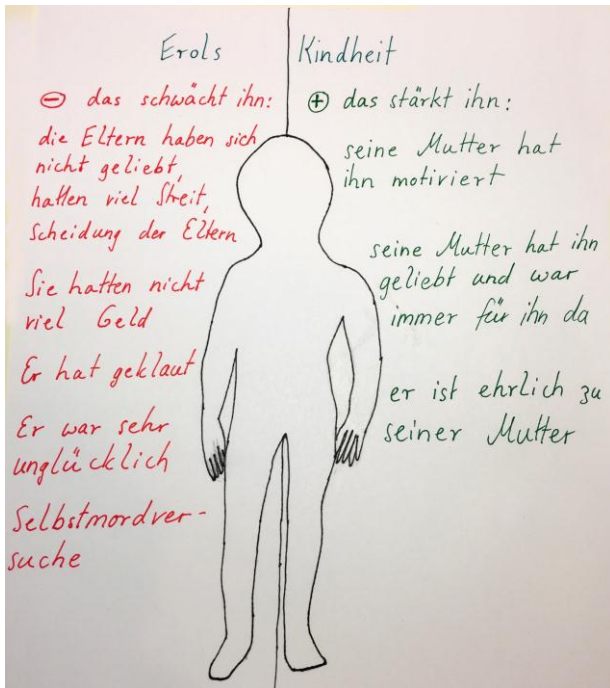 Erols Kindheit
⊖ das schwächt ihn:
die Eltern haben sich
nicht geliebt,
hatten viel Streit,
Scheidung der Eltern
Sie hatten nicht
viel Geld
Er hat geklaut
Er war sehr
unglücklich
Selbstmordver-
suche
⊕ das stärkt ihn:
seine Mutter hat
ihn motiviert
seine Mutter hat ihn
geliebt und war
immer für ihn da
er ist ehrlich zu
seiner Mutter